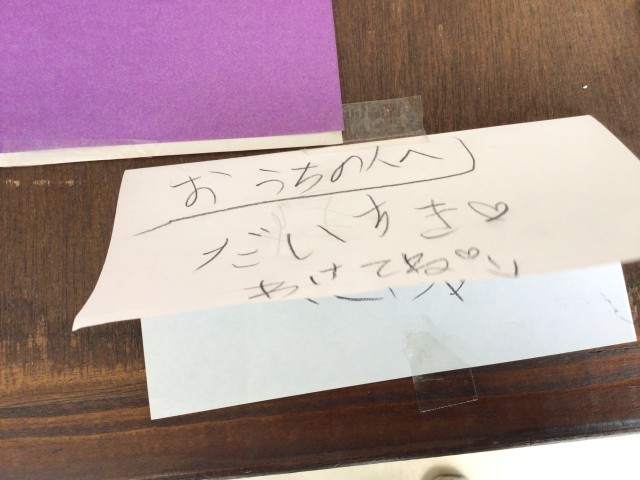 おうちの人へ
だいすき♡
あけてね♡